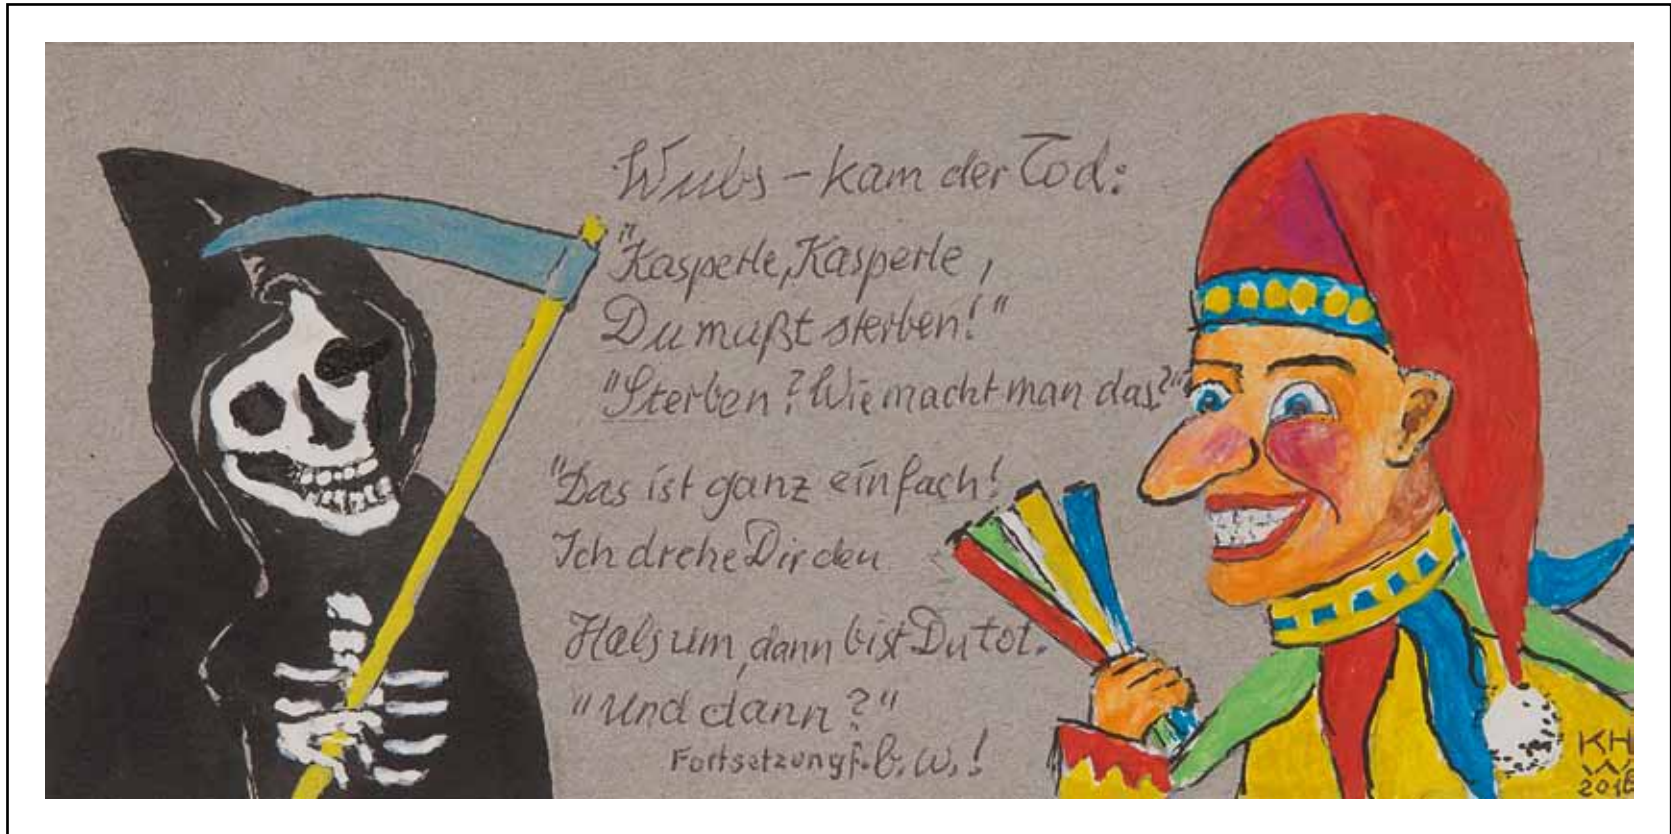 Wubs – kam der Tod:
"Kasperle, Kasperle,
Du mußt sterben!"
"Sterben? Wie macht man das?"
"Das ist ganz einfach!
Ich drehe Dir den
Hals um, dann bist Du tot.
"Und dann?"
Fortsetzung b.w.!
KH
W